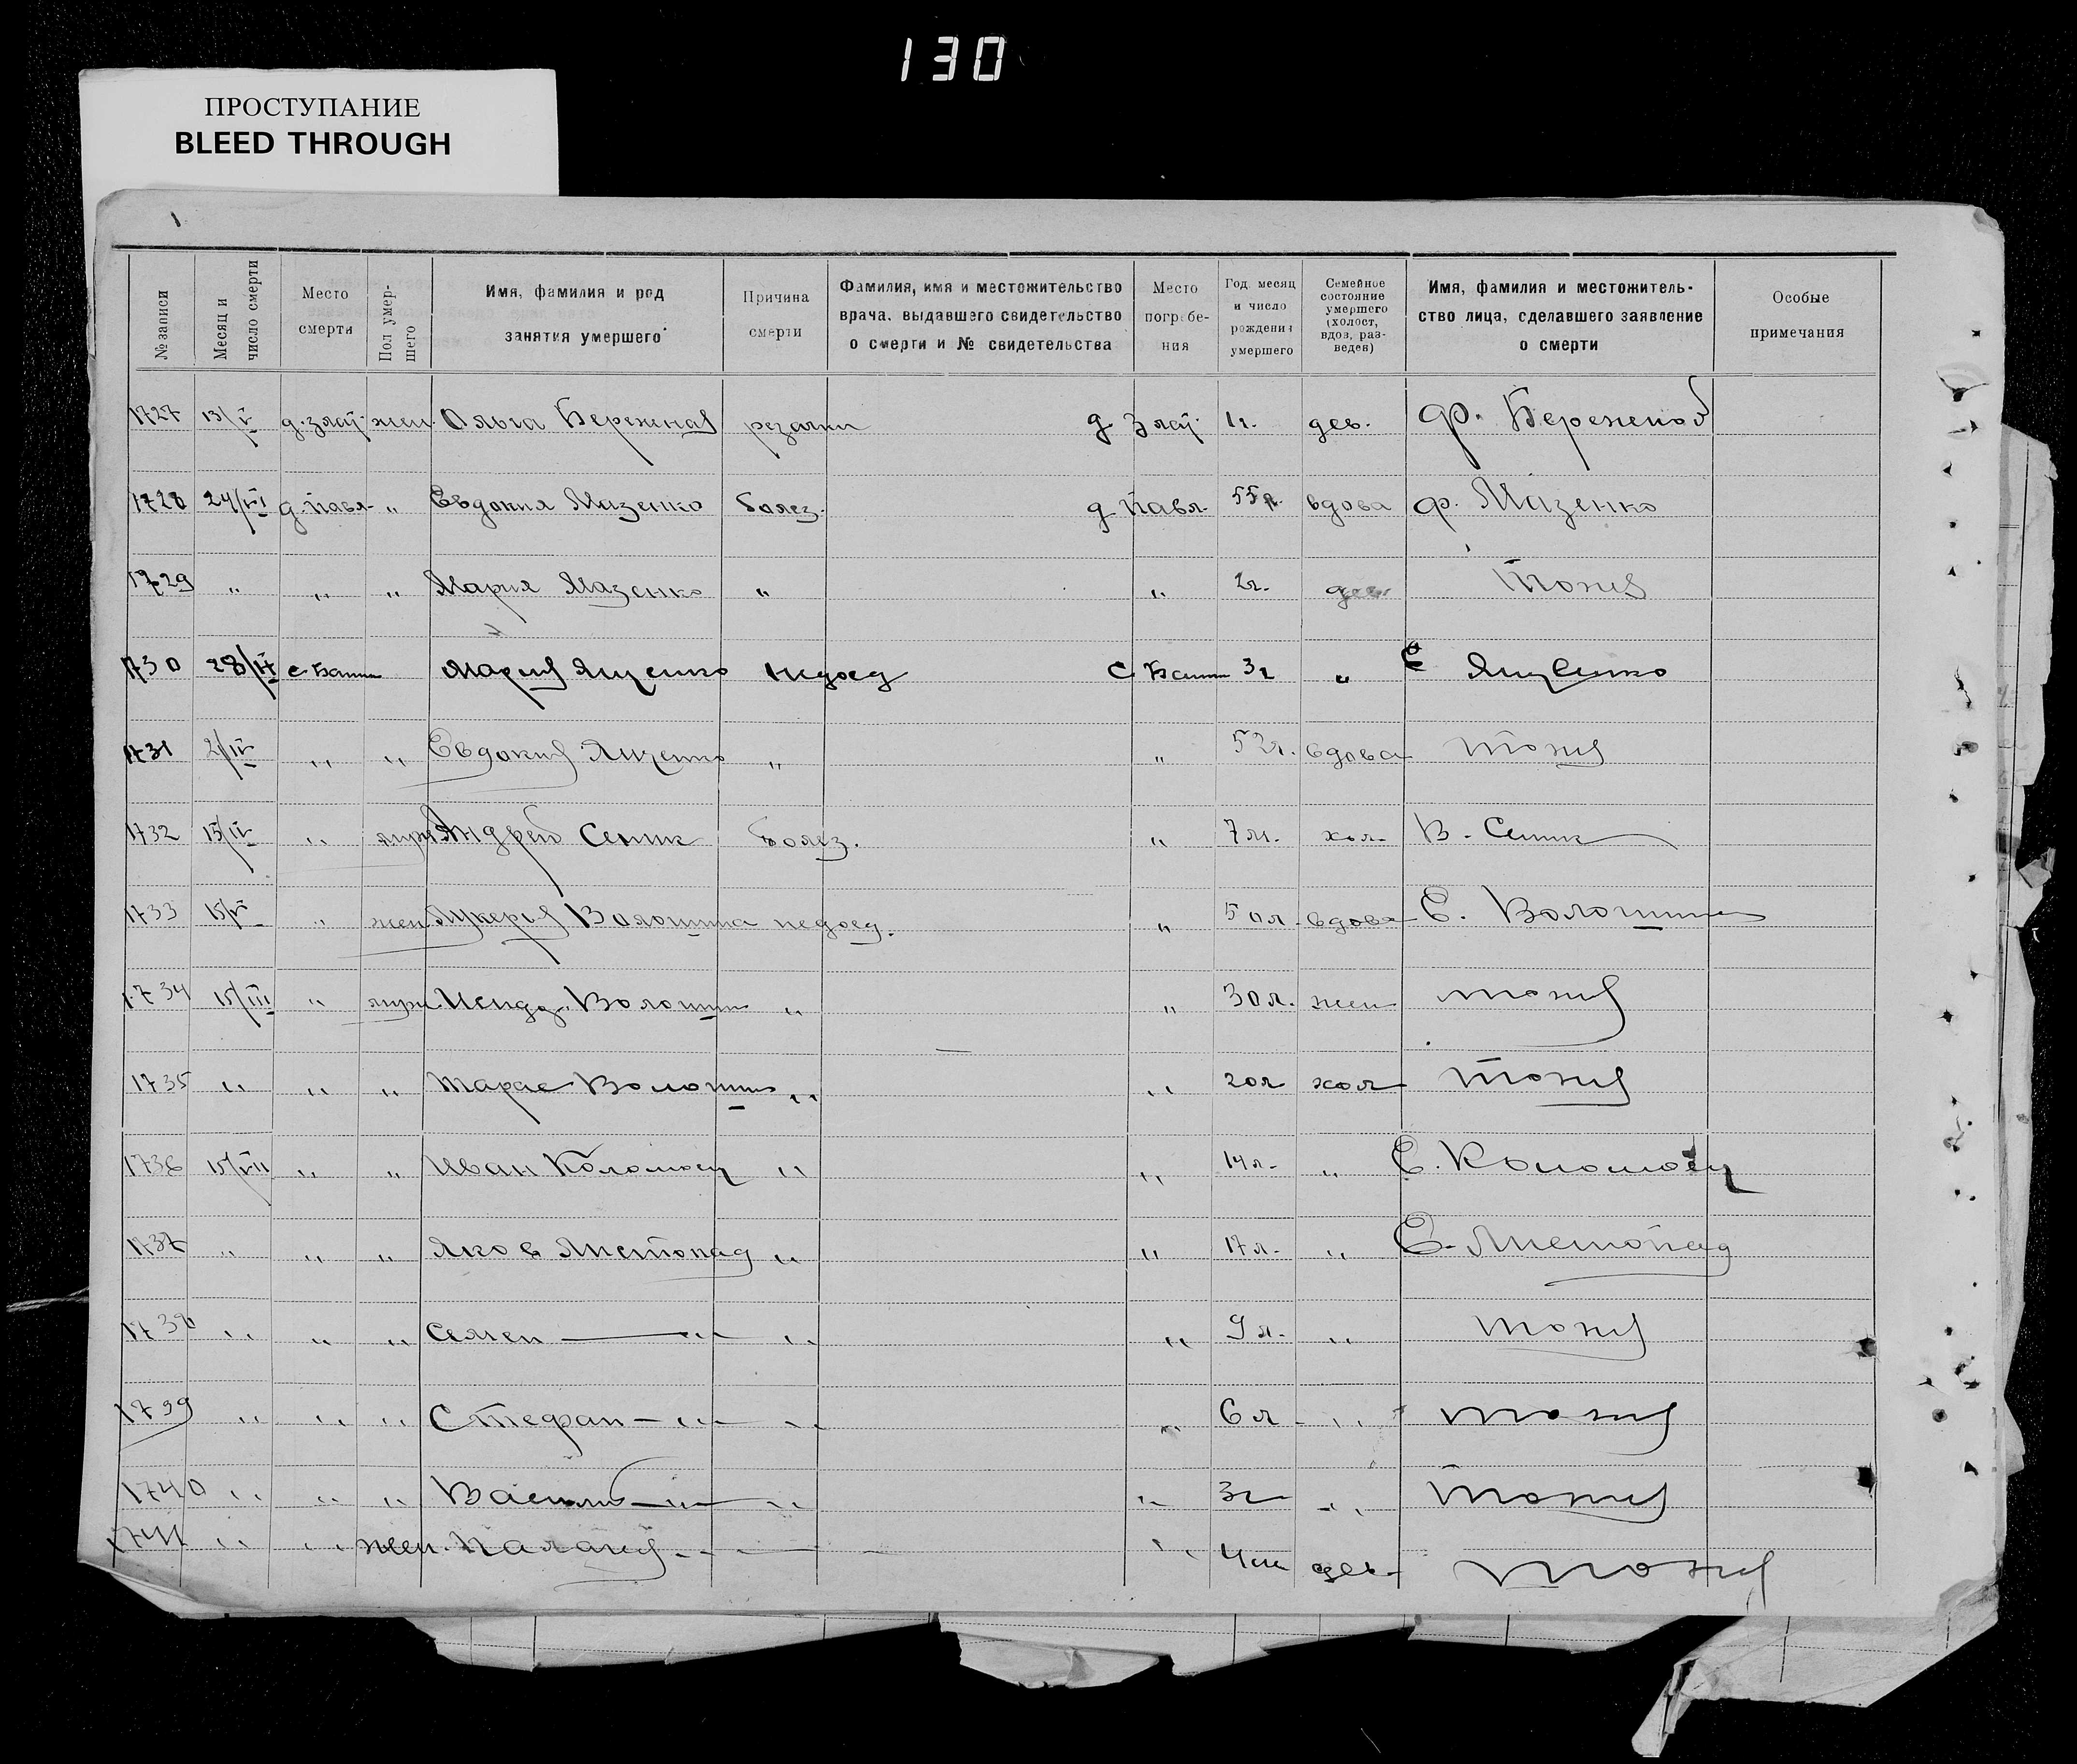 130
ПРОСТУПАНИЕ
BLEED THROUGH
№ записи | Месяц и число смерти | Место смерти | Пол умершего | Имя, фамилия и род занятия умершего | Причина смерти | Фамилия, имя и местожительство врача, выдавшего свидетельство о смерти и № свидетельства | Место погребения | Год, месяц и число рождения умершего | Семейное состояние умершего (холост, вдов, разведен) | Имя, фамилия и местожительство лица, сделавшего заявление о смерти | Особые примечания
1727 13/V д. Злат. жен Ольга д Злат. 1г. дев. Ф.
1728 24/VI д. Павл. " Евдокия Мазенко болез. д Павл. 55л. вдова Ф. Мазенко
1729 " " " Мария Мазенко " " 2г. дев Тоже
1730 с Мария Ященко недоед с 3г " Е Ященко
1731 2/IV " " Евдокия Ященко " " 52г. вдова тоже
1732 15/IV " муж Андрей Сеник болез. " 7м. хол. В. Сеник
1733 15/V " жен Лукерия Волошина недоед. " 50л. вдова Е. Волошин
1734 15/III " муж Исидор Волошин " " 30л. жен тоже
1735 " " " Тарас Волошин " " 20л хол тоже
1736 15/VII " " Иван Коломоец " " 14л. " Е. Коломоец
1737 " " " Яков Листопад " " 17л. " Е. Листопад
1738 " " " Семен — " — " " 9л. " тоже
1739 " " " Стефан — " — " " 6л " тоже
1740 " " " Василь — " — " " 3г " тоже
1741 " " жен. Палагея " 4 дев. тоже